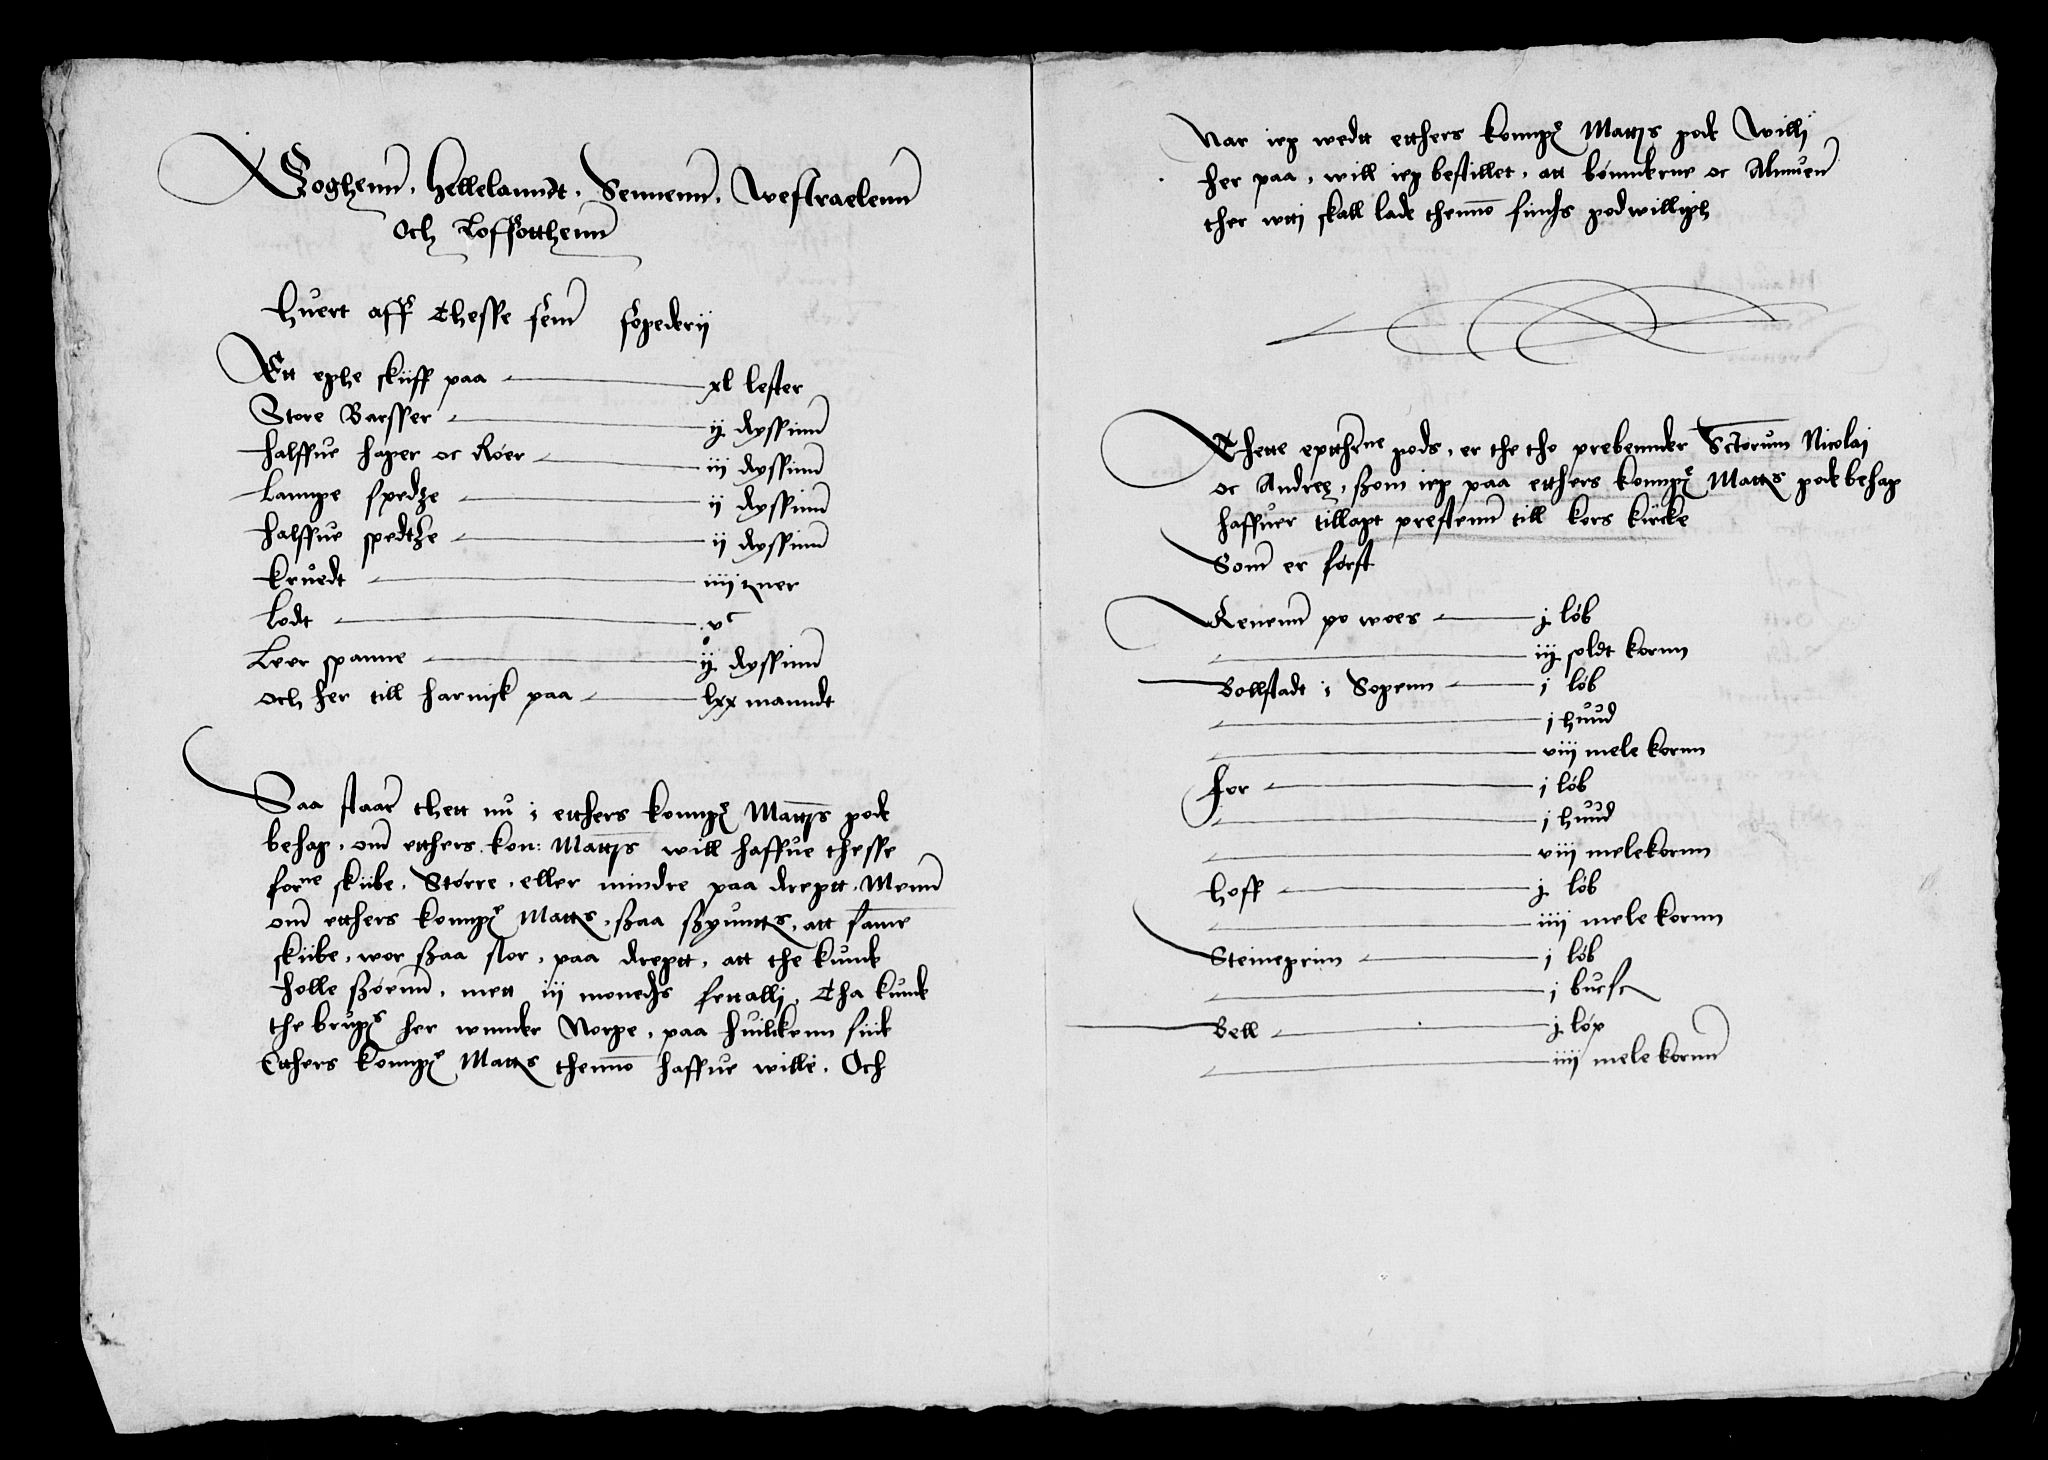 Foghenn, hellelanndt, Sennenn, westraelenn
Och Loffotthenn
Huert aff thesse fem fogederij
Ett eghe skiiff paa xl lester
Store Barsser ij dyssinn
halffue hager oc Rører iij dyssinn
Lannge spedze ij dyssinn
halffue spedtze ij dyssinn
Kruedt iiij tner
Lodt vc
Leer spanne ij dyssinn
och her till harnisk paa lxx manndt
Saa staar thett nu i etthers konngr Mattts gode
behag, om etthers kon: Mattts will haffue thesse
forne skiibe, Større, eller mindre paa dregtt, Menn
om etthers konngr Matts, szaa szyuntts, att same
skiibe, wor szaa stor, paa dregtt, att the kunde
holle szøenn, mett iij monedhs fettallj, Tha kunde
the brugs her wnnder Norge, paa huilckenn siide
Etthers konngr Matts thennom haffue wille, Och
Nar ieg wedtt etthers konngr Mattts gode willj
her paa, will ieg bestillet, att bønnderne oc Almuen
ther wtti skall lade thennom finds godwilligh
Thette eptthrne gods, er the tho prebennder Sctorum Nicolaj
oc Andreę, szom ieg paa etthers konngr Matts gode behag
haffuer tillagt prestenn till kors kircke
Som er først
Renenn po woes j løb
iij soldt kornn
Bollstadt i Sogenn j løb
j huud
viij mele kornn
For j løb
j huud
viij mele kornn
Hoff j løb
iiij mele kornn
Steinegrim j løb
j bucsk
Bell j løp
iiij mele kornn